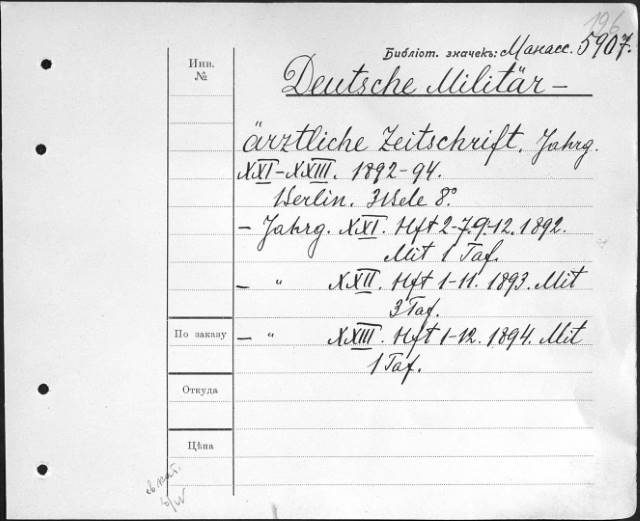 196
Библіот. значекъ: Манасс. 5907.
Инв.
№
Deutsche Militär-
ärztliche Zeitschrift. Jahrg.
XXI-XXIII. 1892-94.
Berlin. 3 Bde 8°.
- Jahrg. XXI. Hft 2-7.9-12. 1892.
Mit 1 Taf.
- " XXII. Hft 1-11. 1893. Mit
3 Taf.
По заказу
- " XXIII. Hft 1-12. 1894. Mit
1 Taf.
Откуда
Цѣна